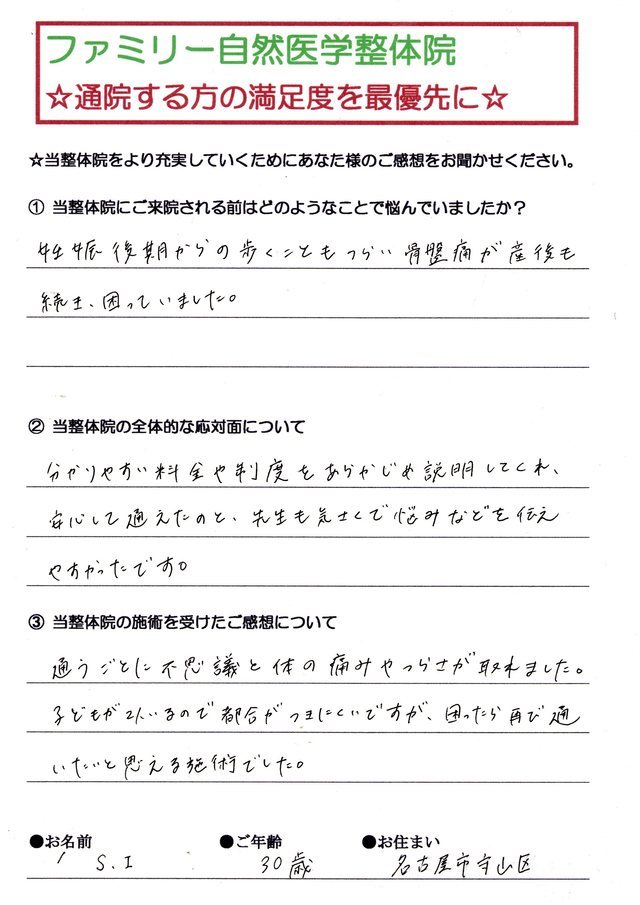 ファミリー自然医学整体院
☆通院する方の満足度を最優先に☆
☆当整体院をより充実していくためにあなた様のご感想をお聞かせください。
① 当整体院にご来院される前はどのようなことで悩んでいましたか？
妊娠後期からの歩くこともつらい骨盤痛が産後も
続き、困っていました。
② 当整体院の全体的な応対面について
分かりやすい料金や制度をあらかじめ説明してくれ、
安心して通えたのと、先生も気さくで悩みなどを伝え
やすかったです。
③ 当整体院の施術を受けたご感想について
通うごとに不思議と体の痛みやつらさが取れました。
子どもが2人いるので都合がつきにくいですが、困ったら再び通
いたいと思える施術でした。
●お名前 ●ご年齢 ●お住まい
S.I 30歳 名古屋市守山区